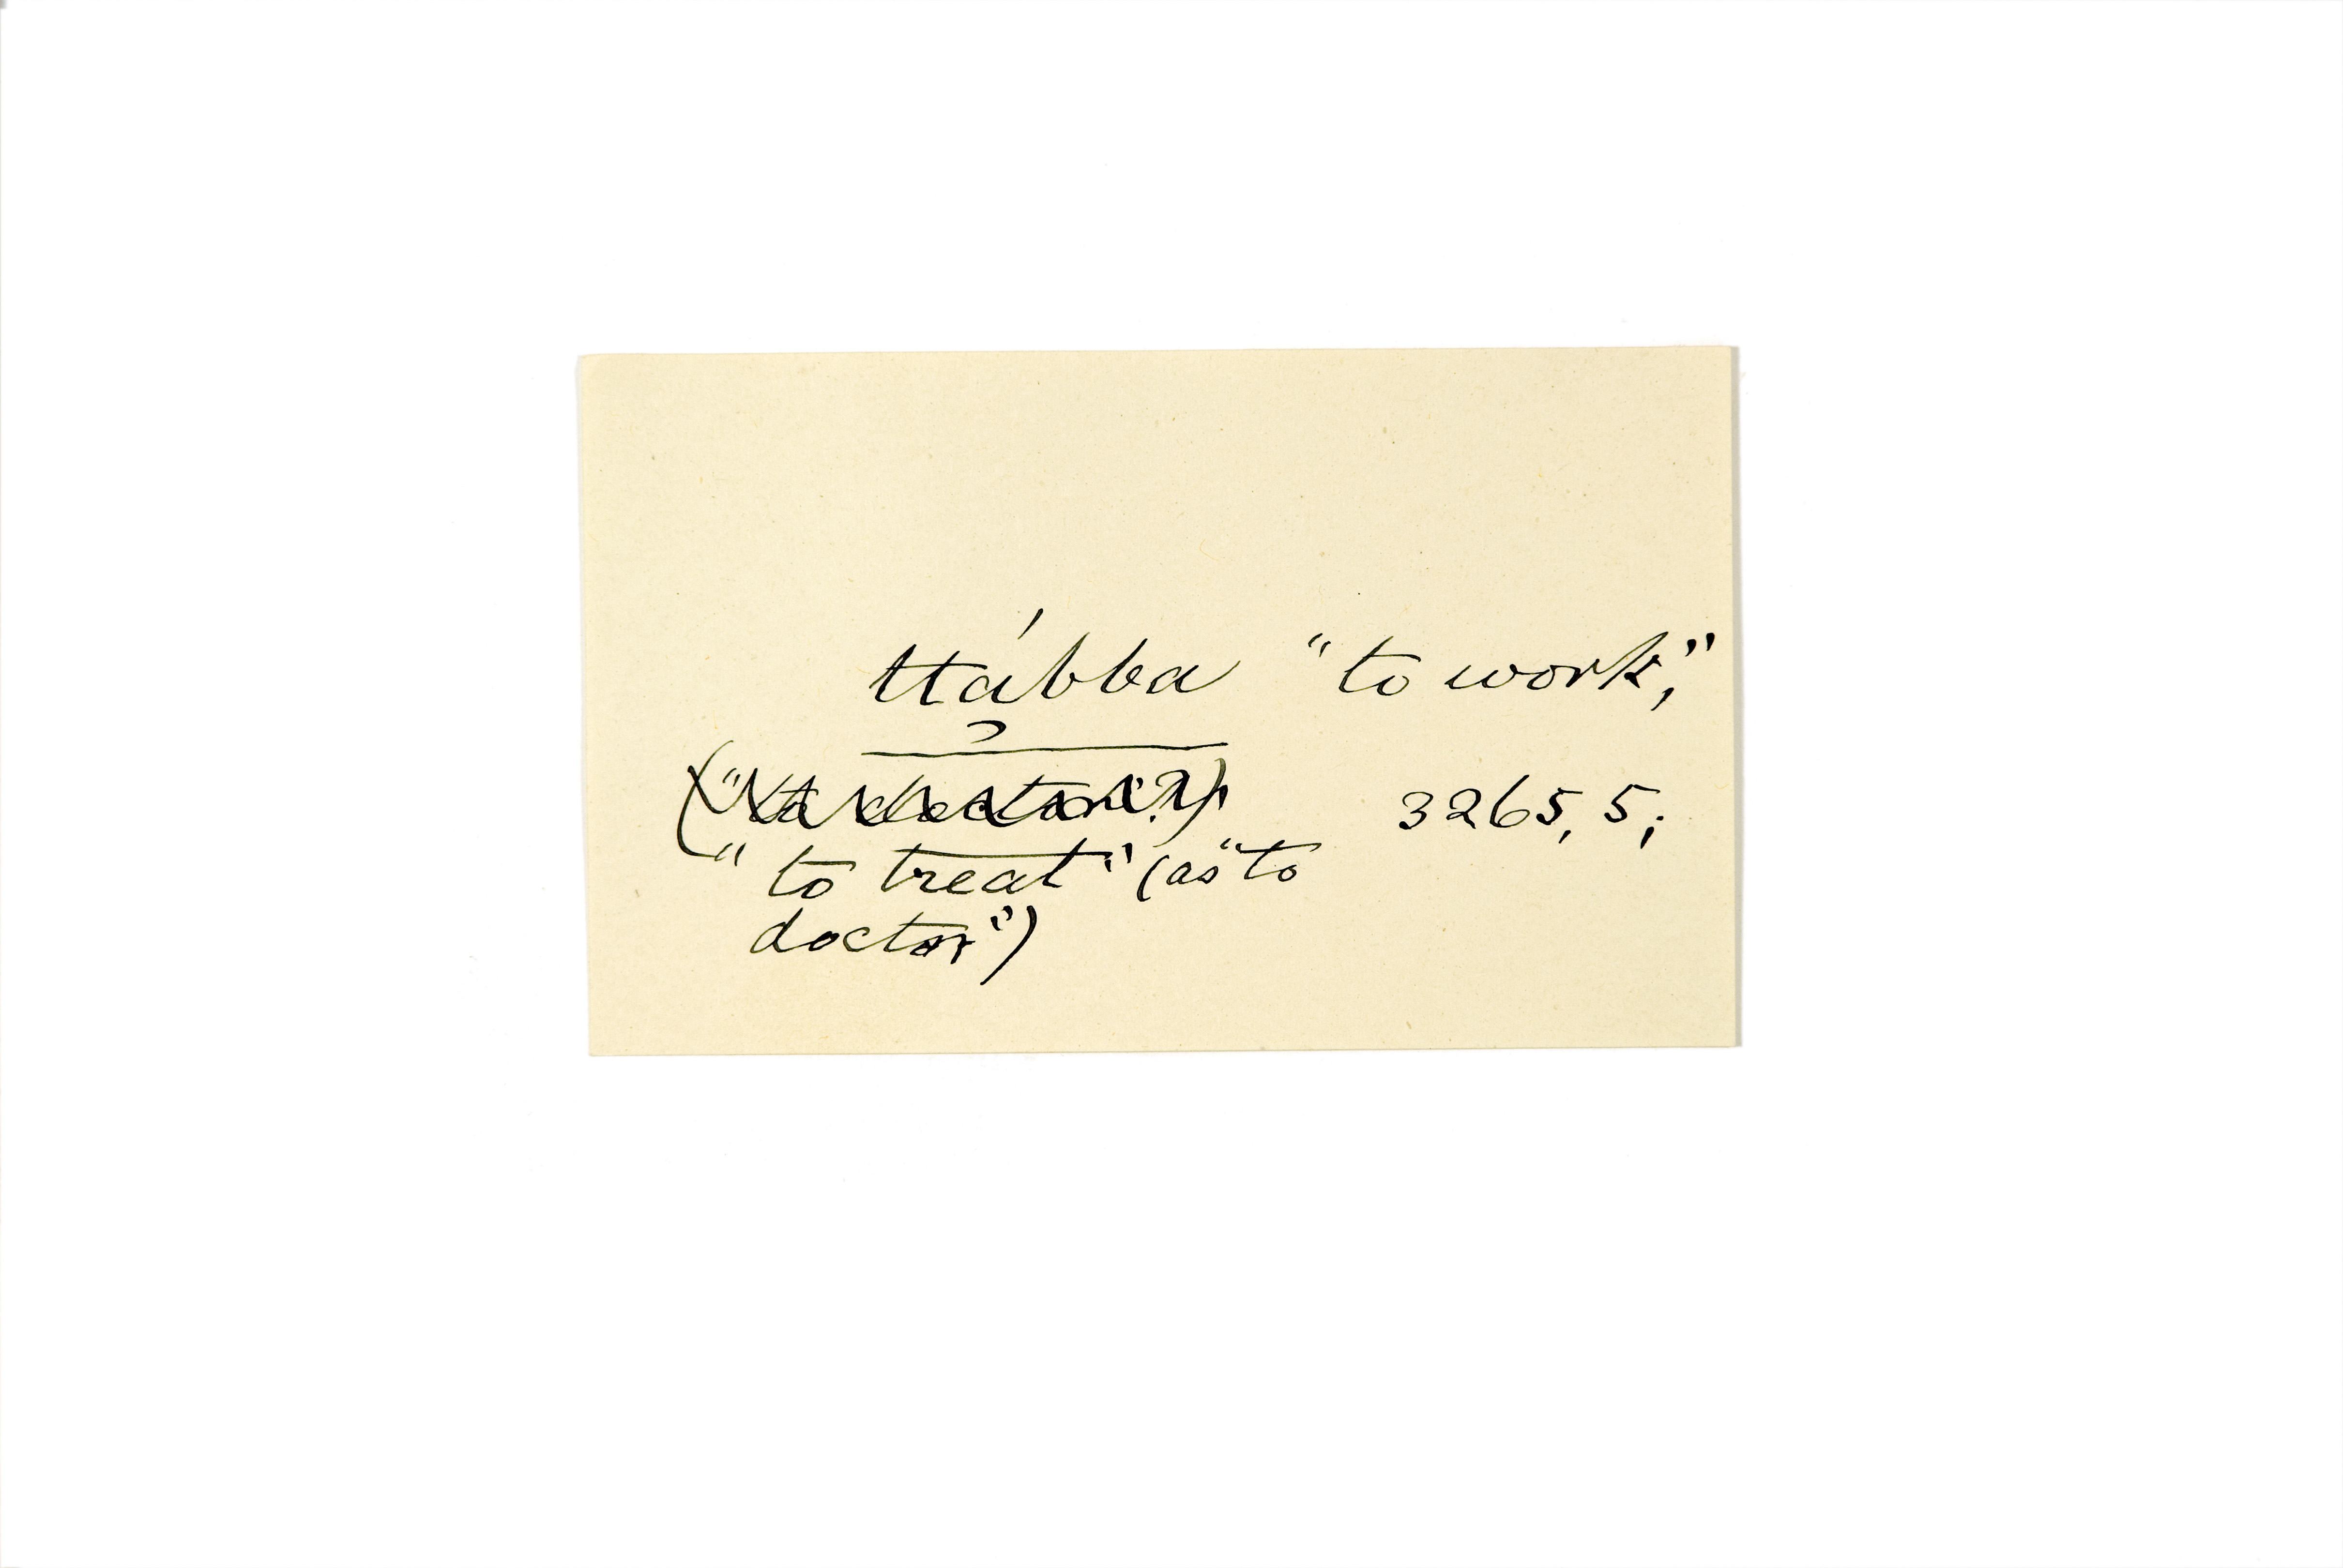 ttábba "to work,"
("to doctor"?) 3265, 5;
"to treat" (as "to
doctor")